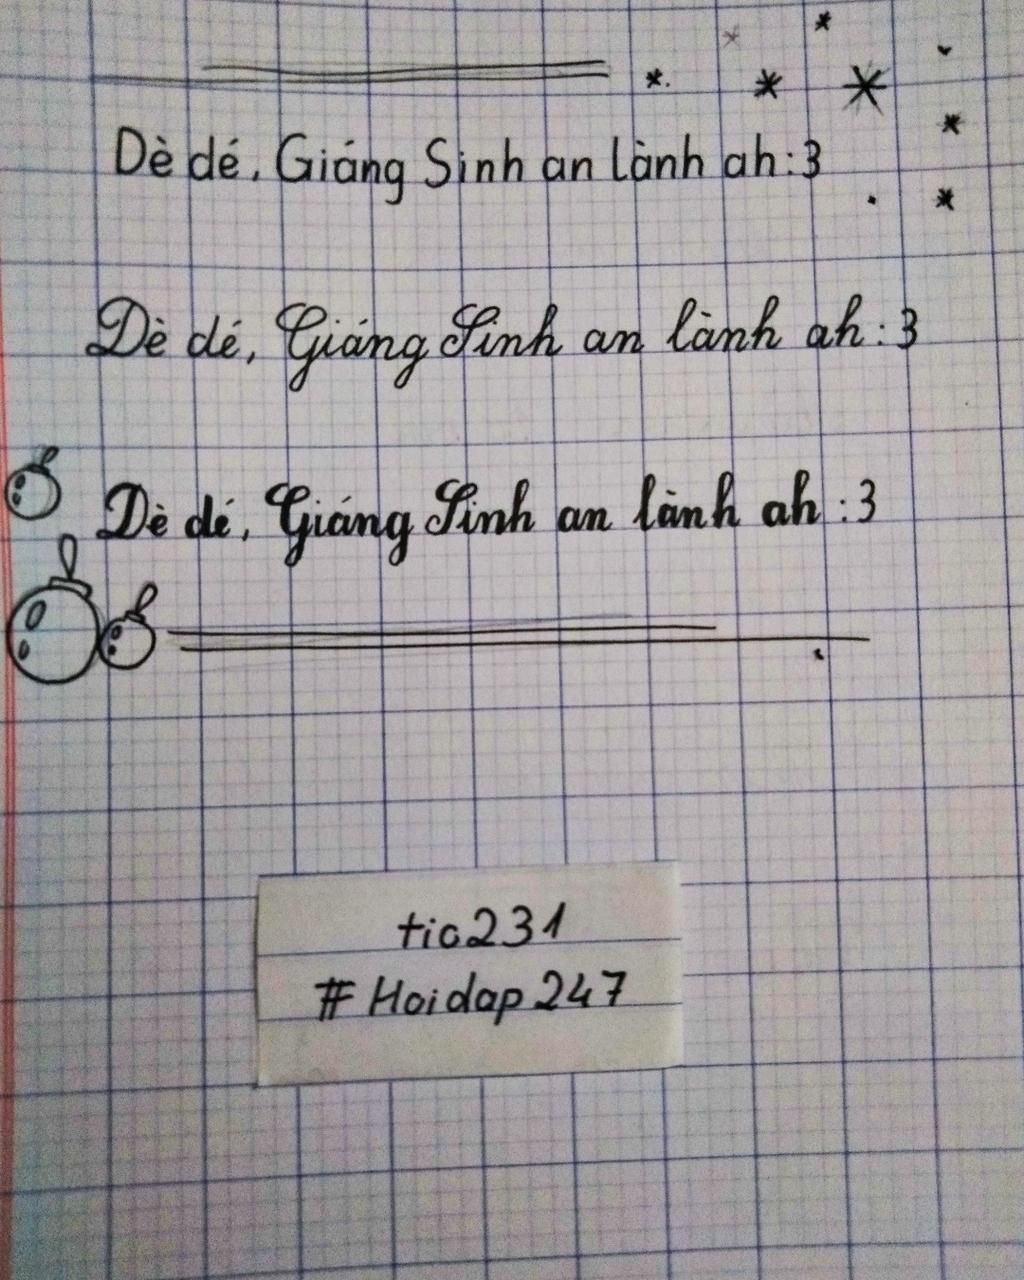 Dè dé, Giáng Sinh an lành ah :3
Dè dé, Giáng Sinh an lành ah : 3
Dè dé, Giáng Sinh an lành ah :3
tic231
# Hoidap 247